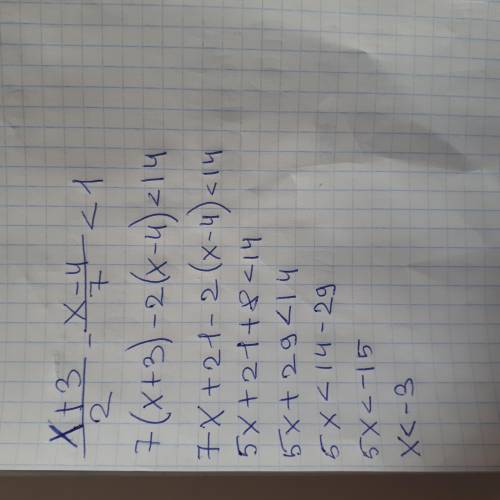 (x+3)/2 - (x-4)/7 < 1
7(x+3)-2(x-4)<14
7x+21-2(x-4)<14
5x+21+8<14
5x+29<14
5x<14-29
5x<-15
x<-3